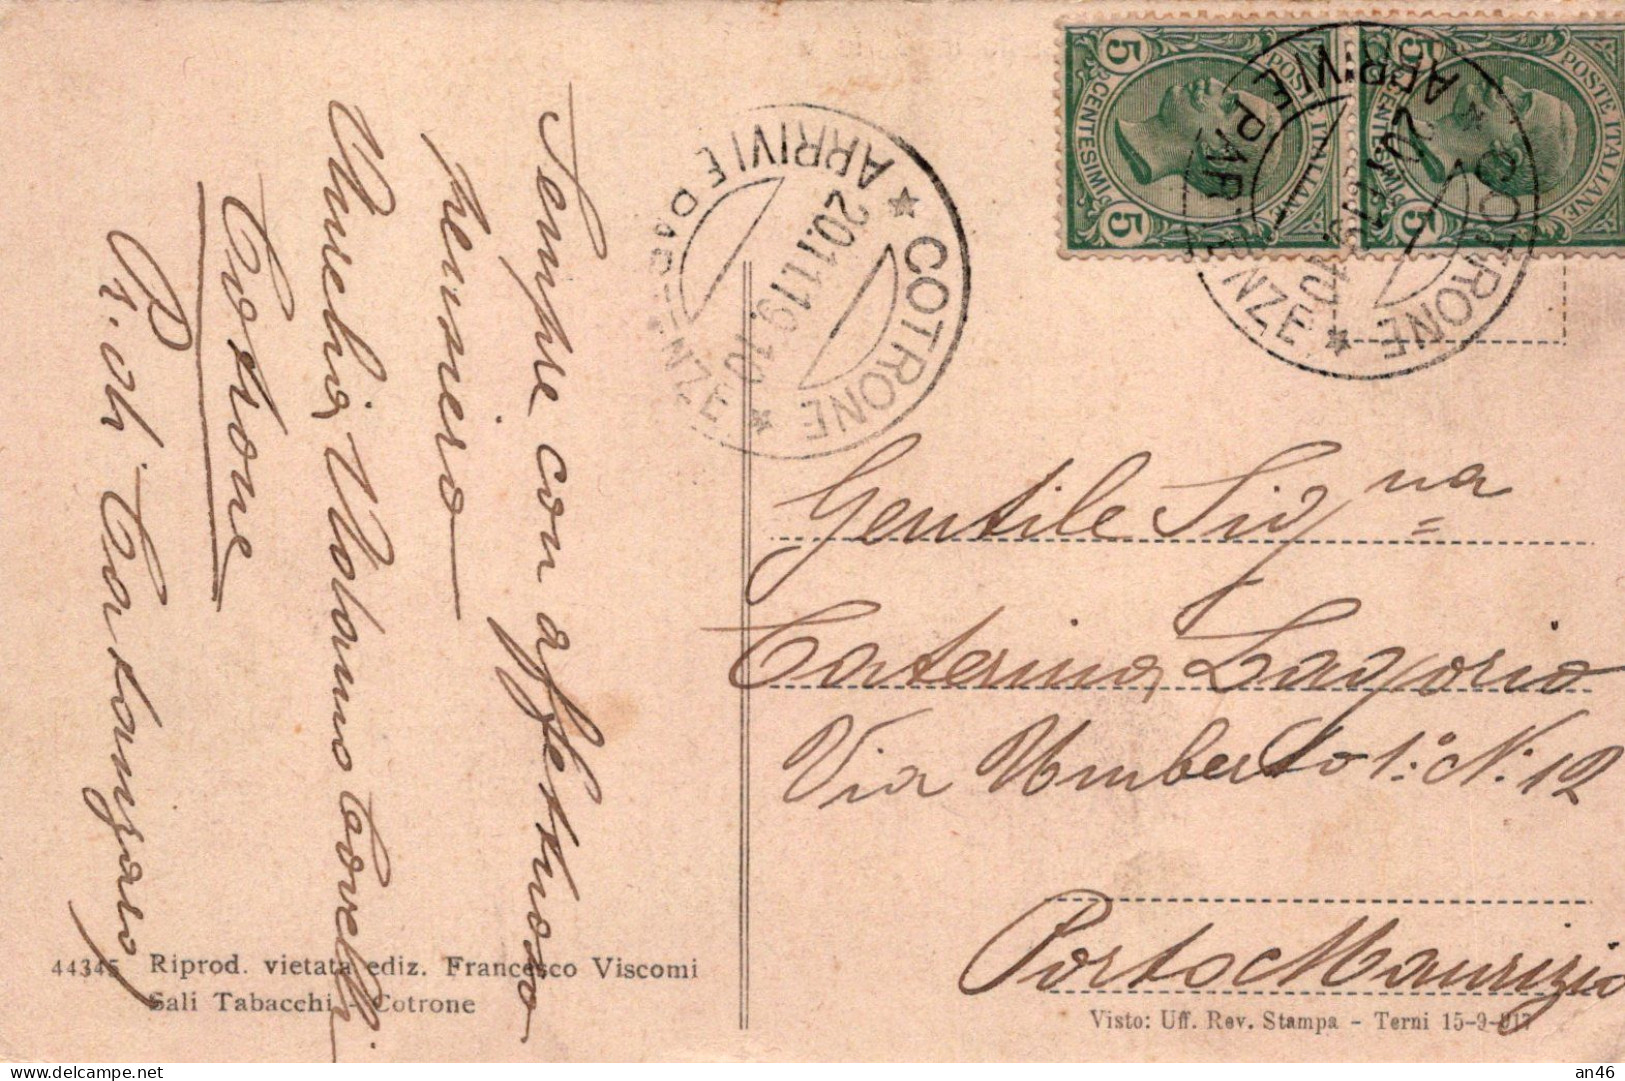 Sempre con affettuoso
pensiero
Aurelia Volamo Covelli
Cotrone
P. di Catanzaro
44345 Riprod. vietata ediz. Francesco Viscomi
Sali Tabacchi - Cotrone
COTRONE
ARRIVI E PARTENZE
20.11.19.10
5 5
CENTESIMI
POSTE ITALIANE
5 5
CENTESIMI
POSTE ITALIANE
COTRONE
ARRIVI E PARTENZE
Gentile Signa
Caterina Lagorio
Via Umberto 1° N. 12
Porto Maurizio
Visto: Uff. Rev. Stampa - Terni 15-9-917
delcampe.net
an46